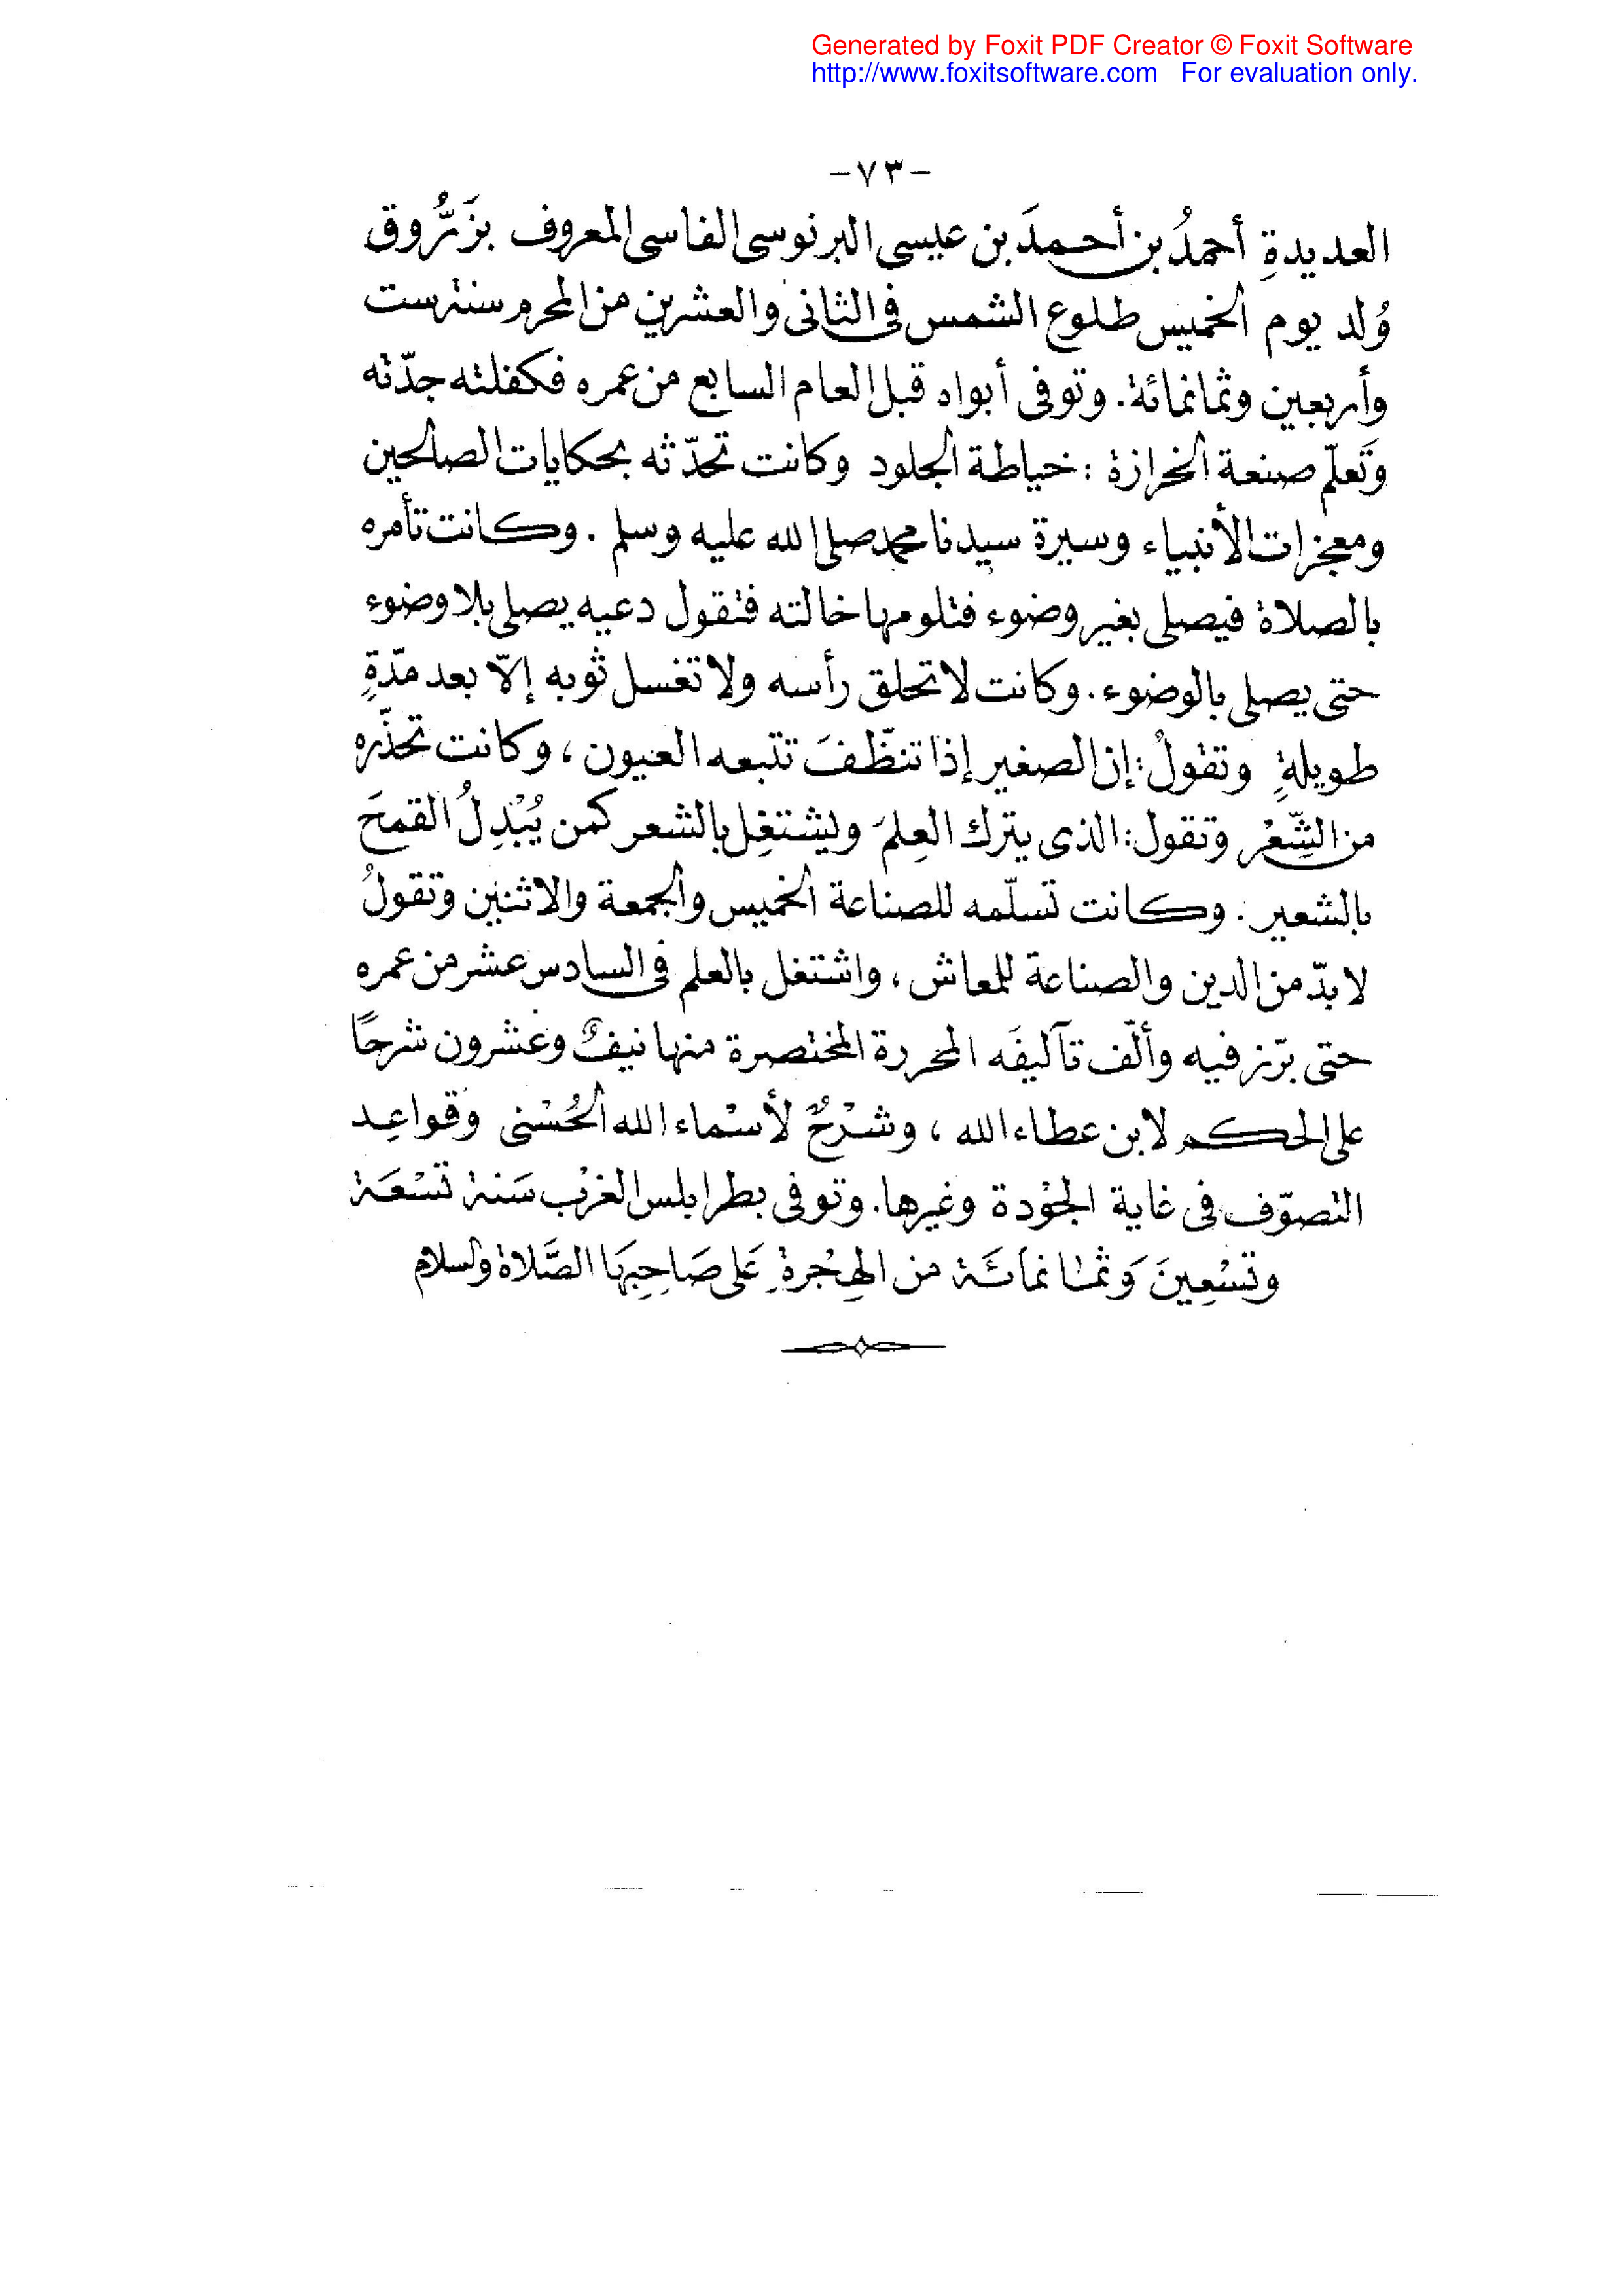 Generated by Foxit PDF Creator © Foxit Software
http://www.foxitsoftware.com For evaluation only.
-٧٣-
العديدةِ أحمدُ بن أحمدَ بن عيسى البرنوسى الفاسى المعروف بزَرُّوق
وُلد يوم الخميس طلوع الشمس فى الثانى والعشرين من المحرم سنة ست
وأربعين وثمانمائة. وتوفى أبواه قبل العام السابع من عمره فكفلته جدّته
وتَعلّم صنعة الخرازة : خياطة الجلود وكانت تحدّثه بحكايات الصالحين
ومعجزات الأنبياء وسيرة سيدنا محمد صلى الله عليه وسلم . وكانت تأمره
بالصلاة فيصلى بغير وضوء فتلومها خالته فتقول دعيه يصلى بلا وضوء
حتى يصلى بالوضوء . وكانت لا تحلق رأسه ولا تغسل ثوبه إلاّ بعد مدّةٍ
طويلةٍ وتقولُ : إن الصغير إذا تنظّفَ تتبعه العيون ، وكانت تحذّره
من الشِّعْر وتقول : الذى يترك العِلمَ ويشتغِل بالشعر كمن يُبْدِلُ القمحَ
بالشعير . وكانت تسلّمه للصناعة الخميس والجمعة والاثنين وتقولُ
لا بدّ من الدين والصناعة للمعاش ، واشتغل بالعلم فى السادس عشر من عمره
حتى برّز فيه وألّف تآليفَه المحررة المختصرة منها نيفٌ وعشرون شرحًا
على الحكم لابن عطاء الله ، وشرْحٌ لأسْماء الله الحُسْنى وقواعِد
التصوّف فى غاية الجوْدة وغيرها. وتوفى بطرابلس الغرْب سَنة تسْعَة
وتسْعِينَ وَثمانمائَة من الهِجْرةِ عَلى صَاحِبِهَا الصَّلاة والسلام